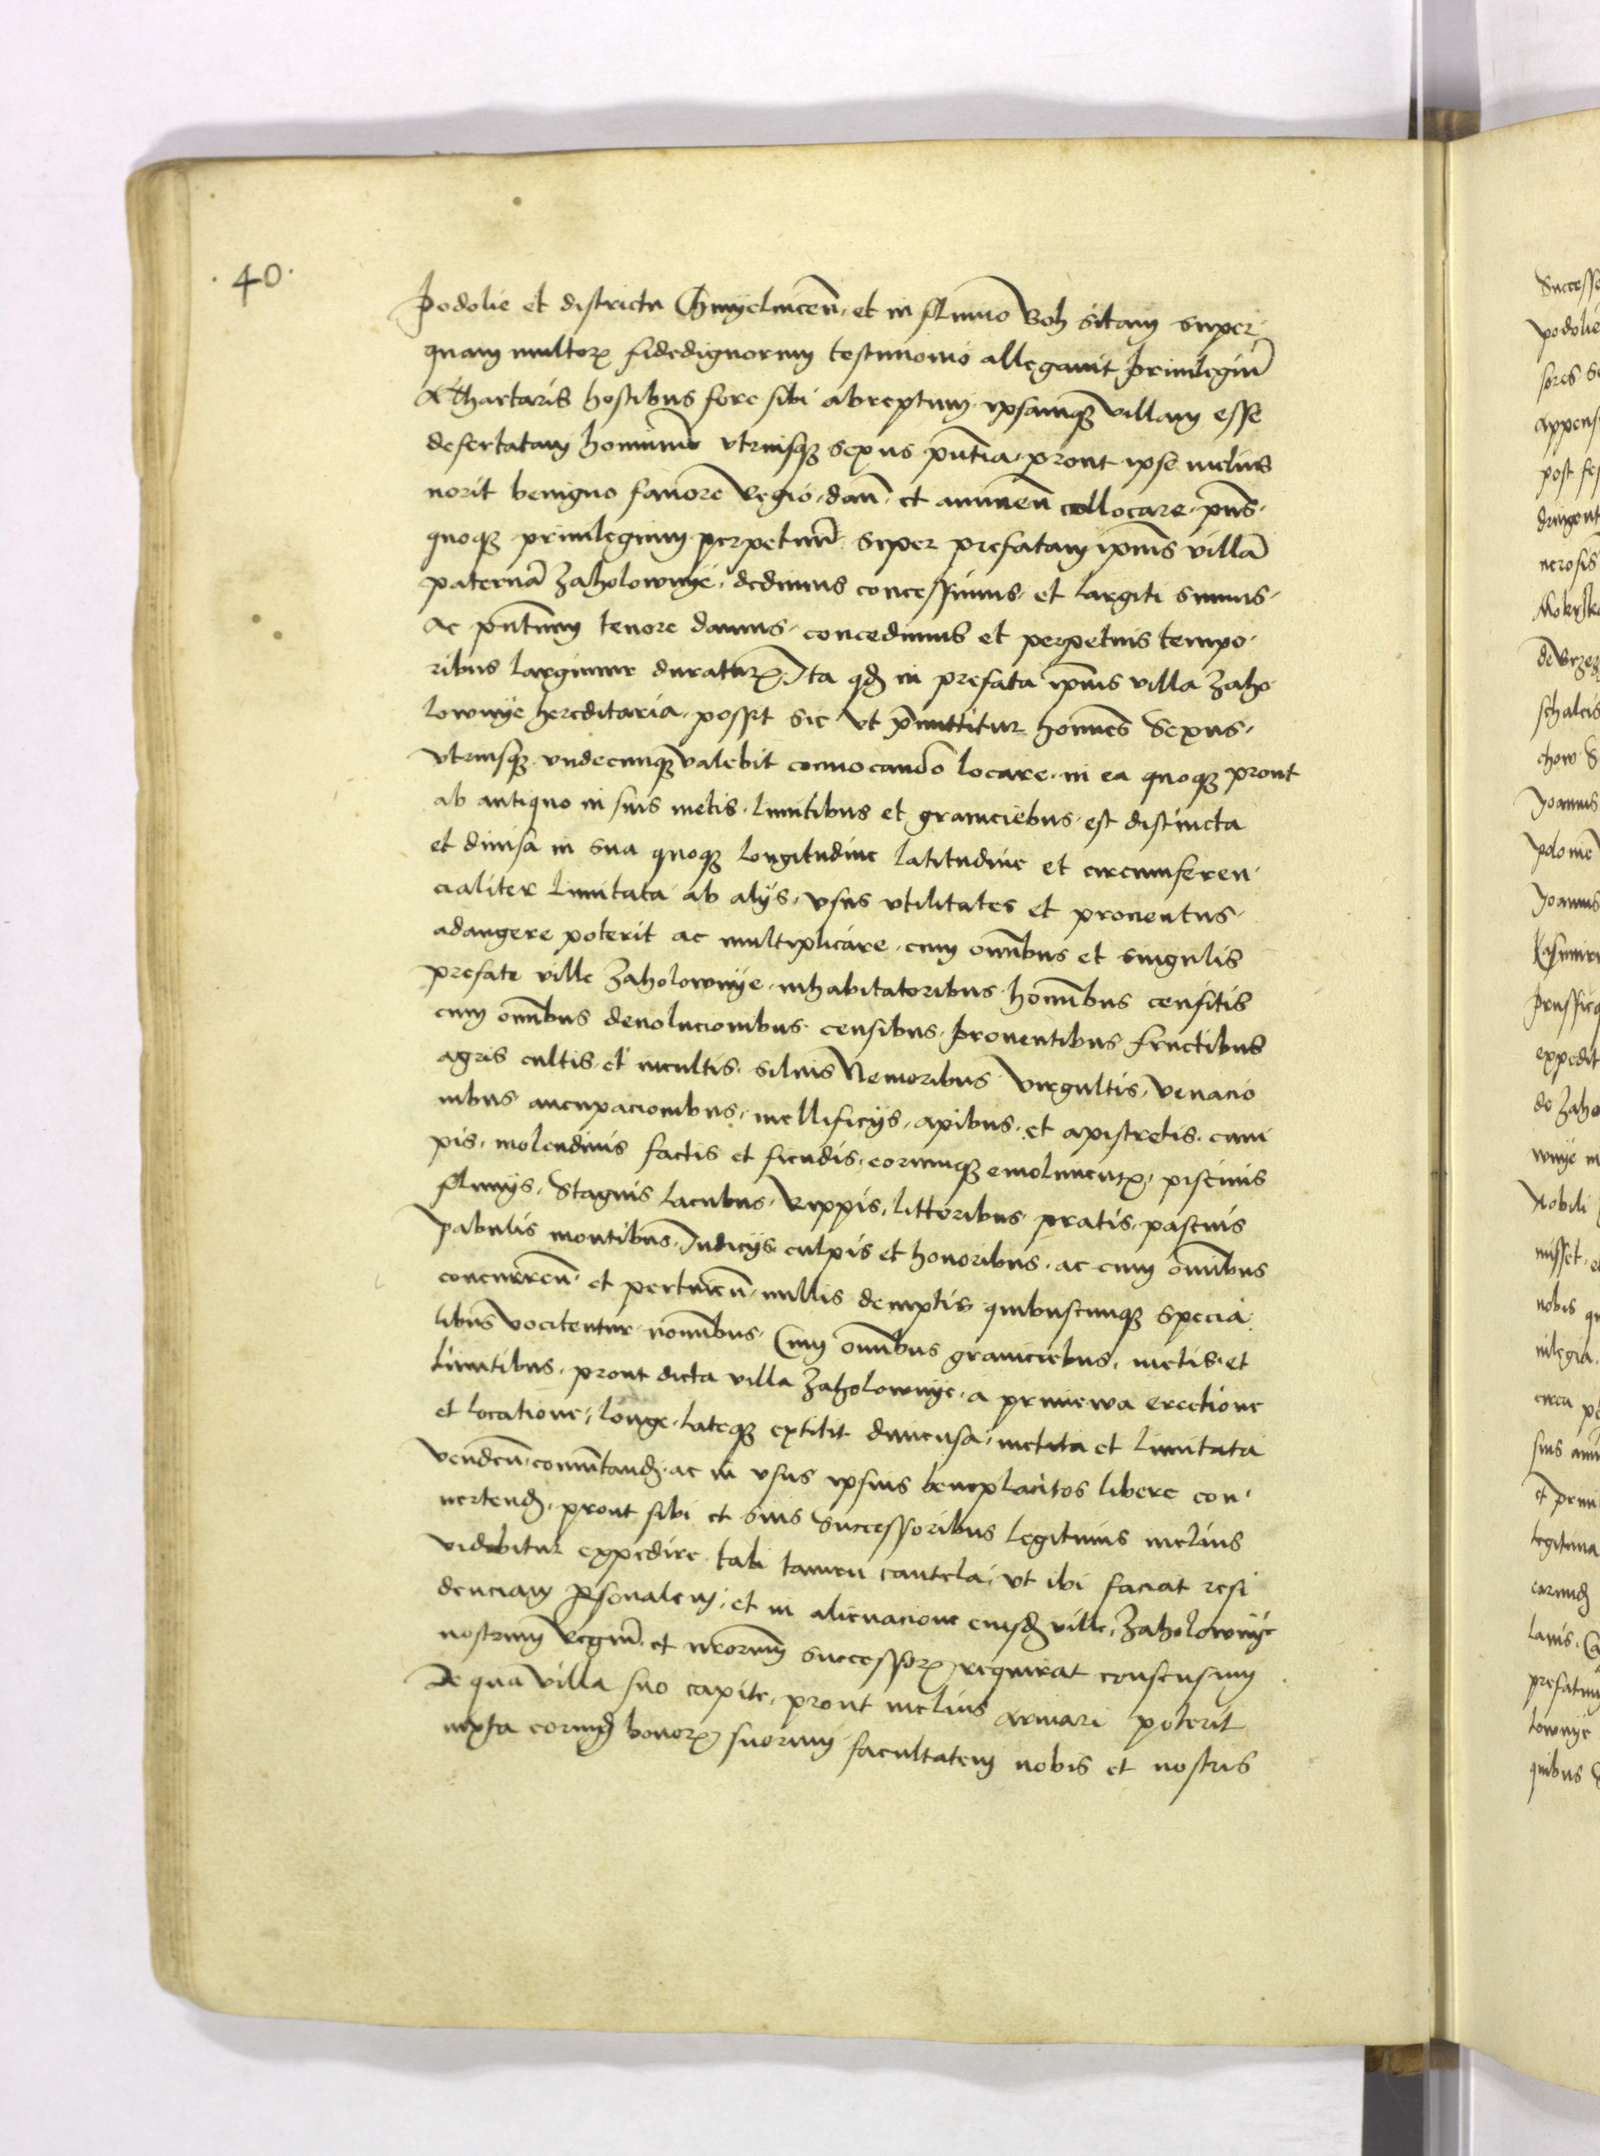 40
Podolie et districtu Chmyelnicen̄. et in fluuio Boh sitam super
quam multoꝝ fidedignorum testimonio allegauit priuilegiū
a Thartaris hostibus fore sibi abreptum ipsamqꝫ villam esse
desertatam hominū vtriusqꝫ sexus pn̄tia. prout ipse melius
norit benigno fauore regio. dan̄. et annuen̄ collocare. pn̄s.
quoqꝫ priuilegium perpetuū. super prefatam ipsius villā
paternā Zaholownye. dedimus concessimus. et largiti sumus.
ac pn̄tium tenore damus. concedimus et perpetuis tempo
ribus largimur duraturꝝ. Ita qđ in prefata ipsius villa Zaho
lownye hereditaria. possit sic vt p̄mittitur homines sexus.
vtriusqꝫ. vndecunqꝫ valebit conuocando locare. in ea quoqꝫ prout
ab antiquo in suis metis. limitibus et graniciebus. est distincta
et diuisa in sua quoqꝫ longitudine latitudine et circumferen
cialiter limitata ab alijs. vsus vtilitates et prouentus.
adaugere poterit ac multiplicare. cum omībus et singulis
prefate ville Zaholownye. inhabitatoribus. homībus censitis
cum omībus deuolucionibus. censibus. prouentibus fructibus
agris cultis. et incultis. siluis Nemoribus virgultis. venacio
nibus aucupacionibus. mellificijs. apibus. et apistretis. cuni
pis. molendinis factis et fiendis. eorumqꝫ emolumentꝝ. piscinis
fluuijs. stagnis lacubus. rippis. littoribus. pratis. pascuis
pabulis montibus. Iudicijs culpis et honoribus. ac cum omībus
concurren̄. et pertinen̄. nullis demptis quibuscunqꝫ specia
libus vocitentur. nomībus. Cum omībus graniciebus. metis. et
limitibus. prout dicta villa Zaholownye. a primewa erectione
et locatione. longe. lateqꝫ extitit dimensa. metita et limitata
venden̄. comutanđ. ac in vsus ipsius beneplacitos libere con
uertenđ. prout sibi et suis successoribus legitimis melius
videbitur expedire. tali tamen cautela. vt ibi faciat resi
denciam ꝑsonalem. et in alienacione eiusđ ville. Zaholownye
nostrum regiū. et nr̄orum successorꝝ requirat consensum
De qua villa suo capite. prout melius armari poterit
iuxta eorunđ bonorꝝ suorum facultatem nobis et nostris